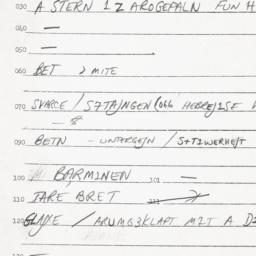 030 A STERN 1Z AROGEFALN FUN H
040 —
050 —
060 BET 2 MITE
070 SVARCE / S7TAJNGEN (066 HEBREJISE
— 8
090 BETN - UNTERGEJN / S+T1WERHEJT
100 BARMINEN 101 —
110 TARE BRET 111
120 / ARUMG3KLAPT MIT A D